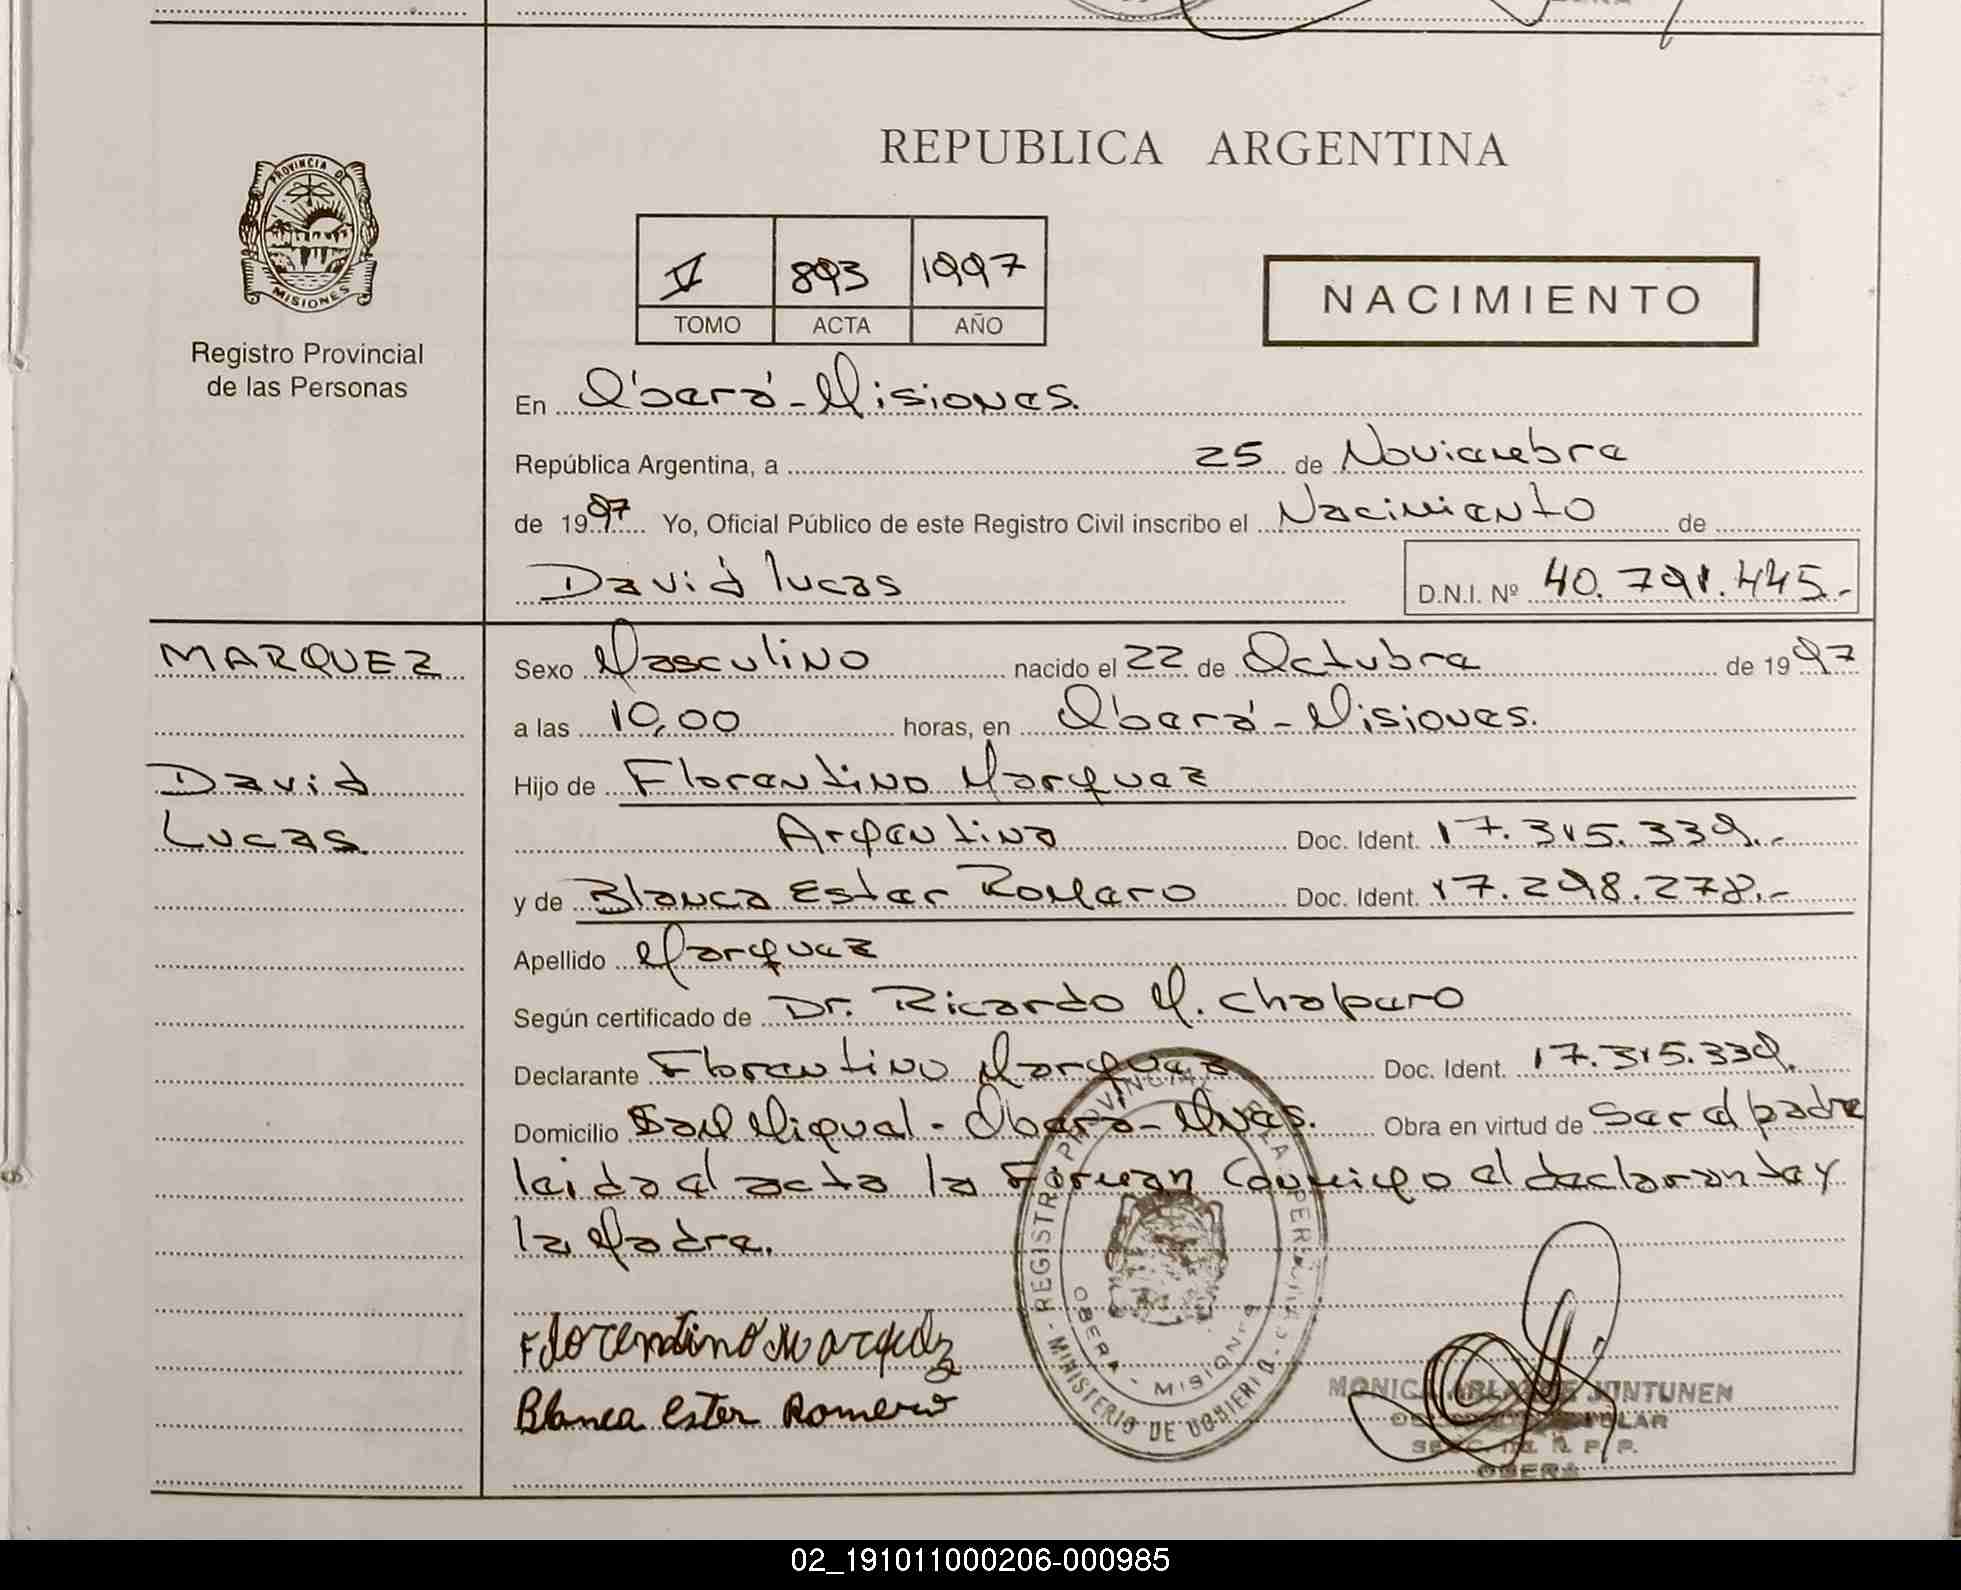 REPUBLICA ARGENTINA
PROVINCIA DE
MISIONES
Registro Provincial
de las Personas
V 893 1997
TOMO ACTA AÑO
NACIMIENTO
En Oberá - Misiones.
República Argentina, a 25 de Noviembre
de 1997 Yo, Oficial Público de este Registro Civil inscribo el Nacimiento de
David Lucas D.N.I. Nº 40.791.445.-
MARQUEZ
David
Lucas.
Sexo Masculino nacido el 22 de Octubre de 1997
a las 10,00 horas, en Oberá - Misiones.
Hijo de Florentino Marquez
Argentino Doc. Ident. 17.315.339.-
y de Blanca Ester Romero Doc. Ident. 17.298.278.-
Apellido Marquez
Según certificado de Dr. Ricardo M. Chaparro
Declarante Florentino Marquez Doc. Ident. 17.315.339.
Domicilio San Miguel - Oberá - Mnes. Obra en virtud de Ser el padre
leida el acta la Forman Conmigo el declarante y
la Madre.
Florentino Marquez
Blanca Ester Romero
REGISTRO PROVINCIAL
MINISTERIO DE GOBIERNO
OBERA - MISIONES
MONICA JUNTUNEN
OBERA
02_191011000206-000985